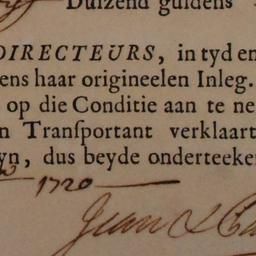 Duizend guldens
DIRECTEURS, in tyd en
ens haar origineelen Inleg.
op die Conditie aan te ne
n Tranſportant verklaart
yn, dus beyde onderteeke
1720
Jean